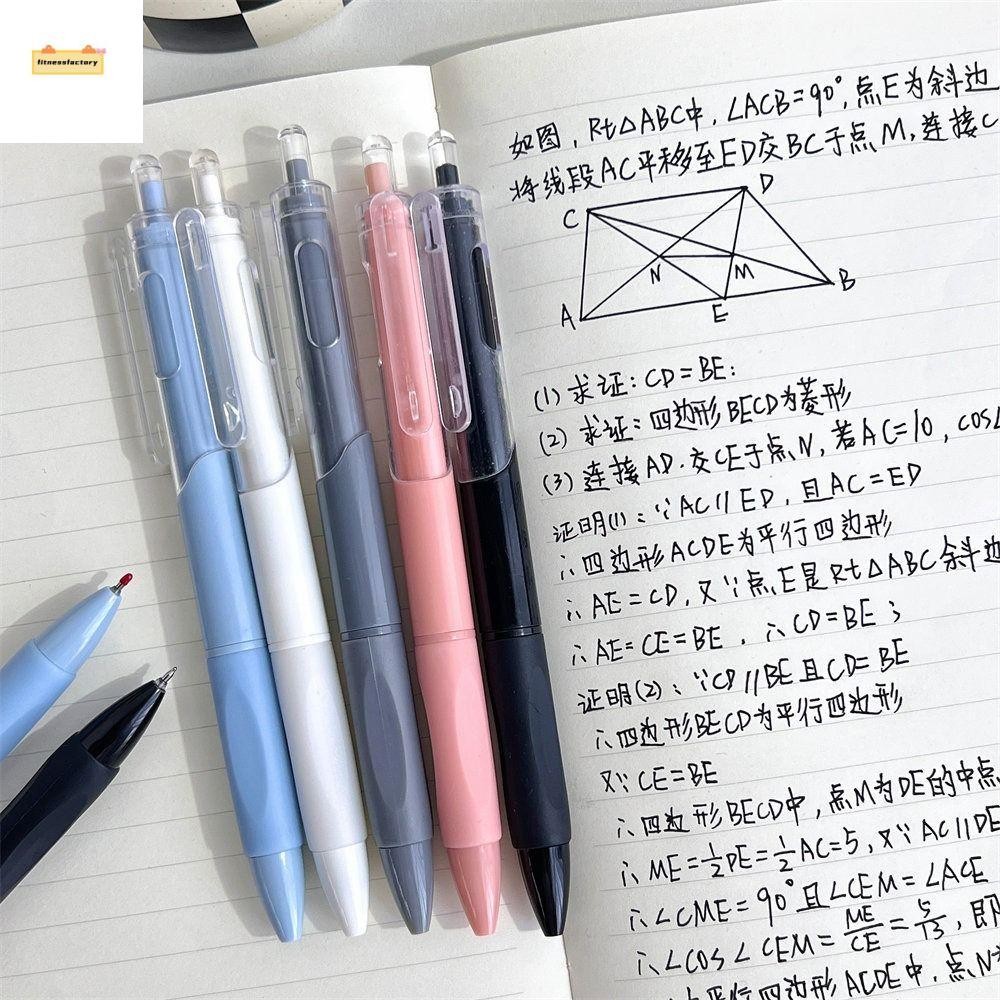 fitnessfactory
如图,Rt△ABC中,∠ACB=90°,点E为斜边
将线段AC平移至ED交BC于点M,连接C
D
C
N
M
B
A
E
(1) 求证:CD=BE;
(2) 求证:四边形BECD为菱形
(3) 连接AD.交CE于点N,若AC=10,cos∠
证明(1):∵AC∥ED,且AC=ED
∴四边形ACDE为平行四边形
∴AE=CD,又∵点E是Rt△ABC斜边
∴AE=CE=BE,∴CD=BE;
证明(2):∵CD∥BE且CD=BE
∴四边形BECD为平行四边形
又∵CE=BE
∴四边形BECD中,点M为DE的中点
∴ME=1/2DE=1/2AC=5,又∵AC∥DE
∴∠CME=90°且∠CEM=∠ACE
∴∠cos∠CEM=ME/CE=5/13,即
平行四边形ACDE中,点N为